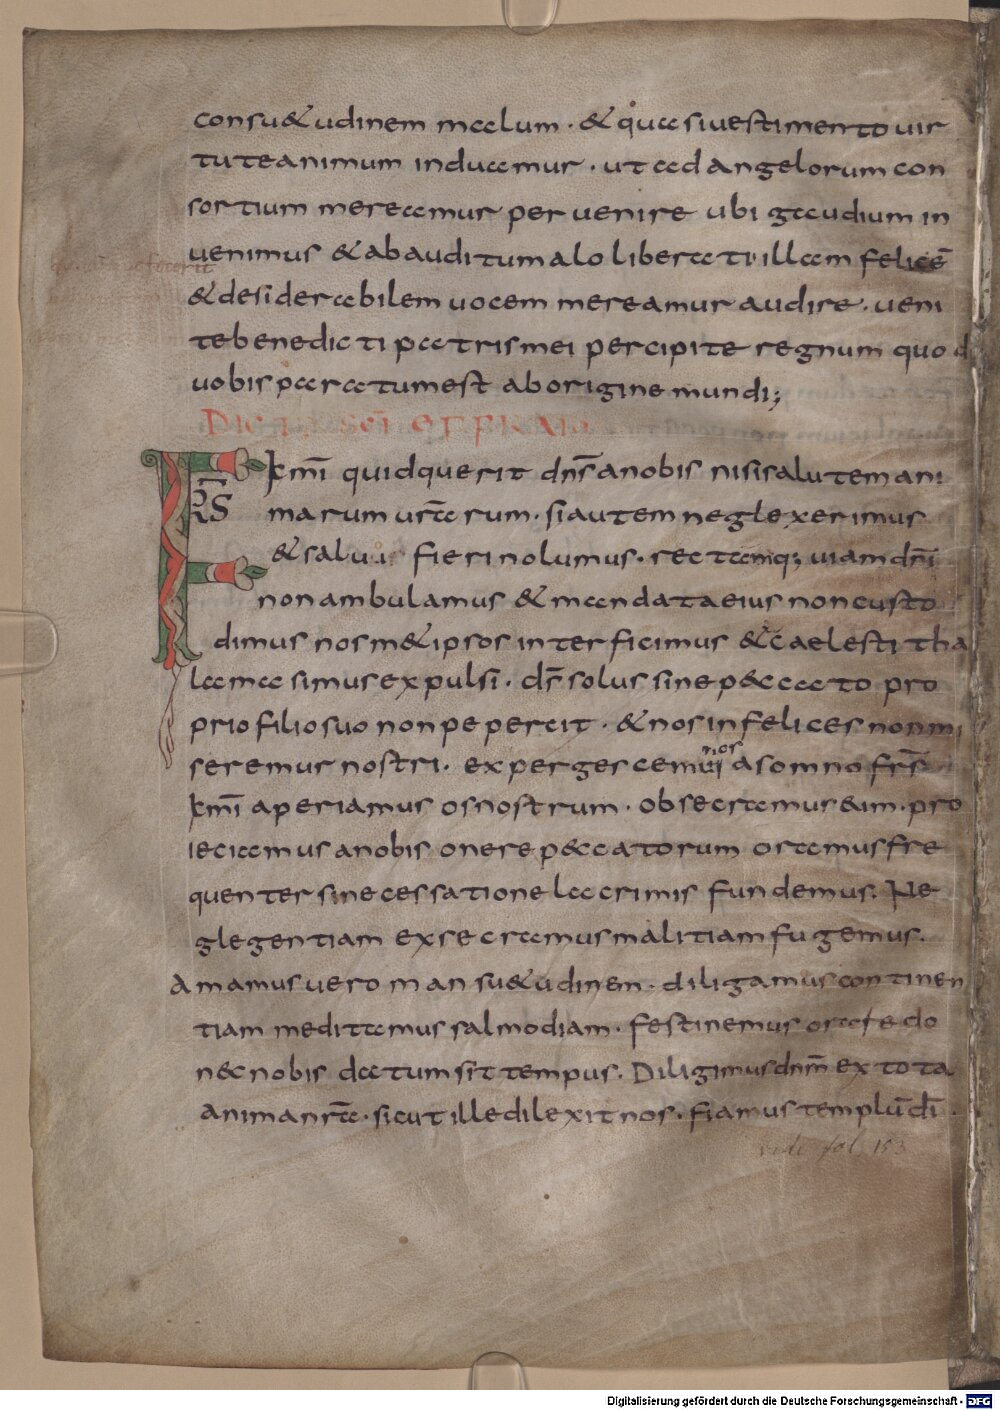 consu&udinem malum · & quasi uestimento uir
tute animum induamur · ut ad angelorum con
sortium mereamur peruenire ubi gaudium in
uenimus & ab auditu malo liberati illam felicē
& desiderabilem uocem mereamur audire · ueni
te benedicti patris mei percipite regnum quod
uobis paratum est ab origine mundi;
DICTA SCI EFFREM
FRS kmī quid querit dns̄ a nobis nisi salutem ani
marum nr̄arum · si autem neglexerimus
& salui fieri nolumus · rectamq; uiam dn̄i
non ambulamus & mandata eius non custo
dimus nosm&ipsos interficimus & caelesti tha
lamasimus expulsi · ds̄ solus sine peccato pro
prio filio suo non pepercit · & nos infelices non mi
seremur nostri · expergescemini nos a somno frs̄
kmī aperiamus os nostrum · obsecramus eum · pro
ieciamus a nobis onere peccatorum oramus fre
quenter sine cessatione lacrimis fundemus. Ne
glegentiam exsecramus malitiam fugemus.
Amamus uero mansu&udinem · diligamus continen
tiam meditamus salmodiam · festinemus orare do
nec nobis datum sit tempus. Diligimus dnm̄ ex tota
anima nr̄a · sicut ille dilexit nos · fiamus templū dī ·
vide fol. 153
Digitalisierung gefördert durch die Deutsche Forschungsgemeinschaft - DFG